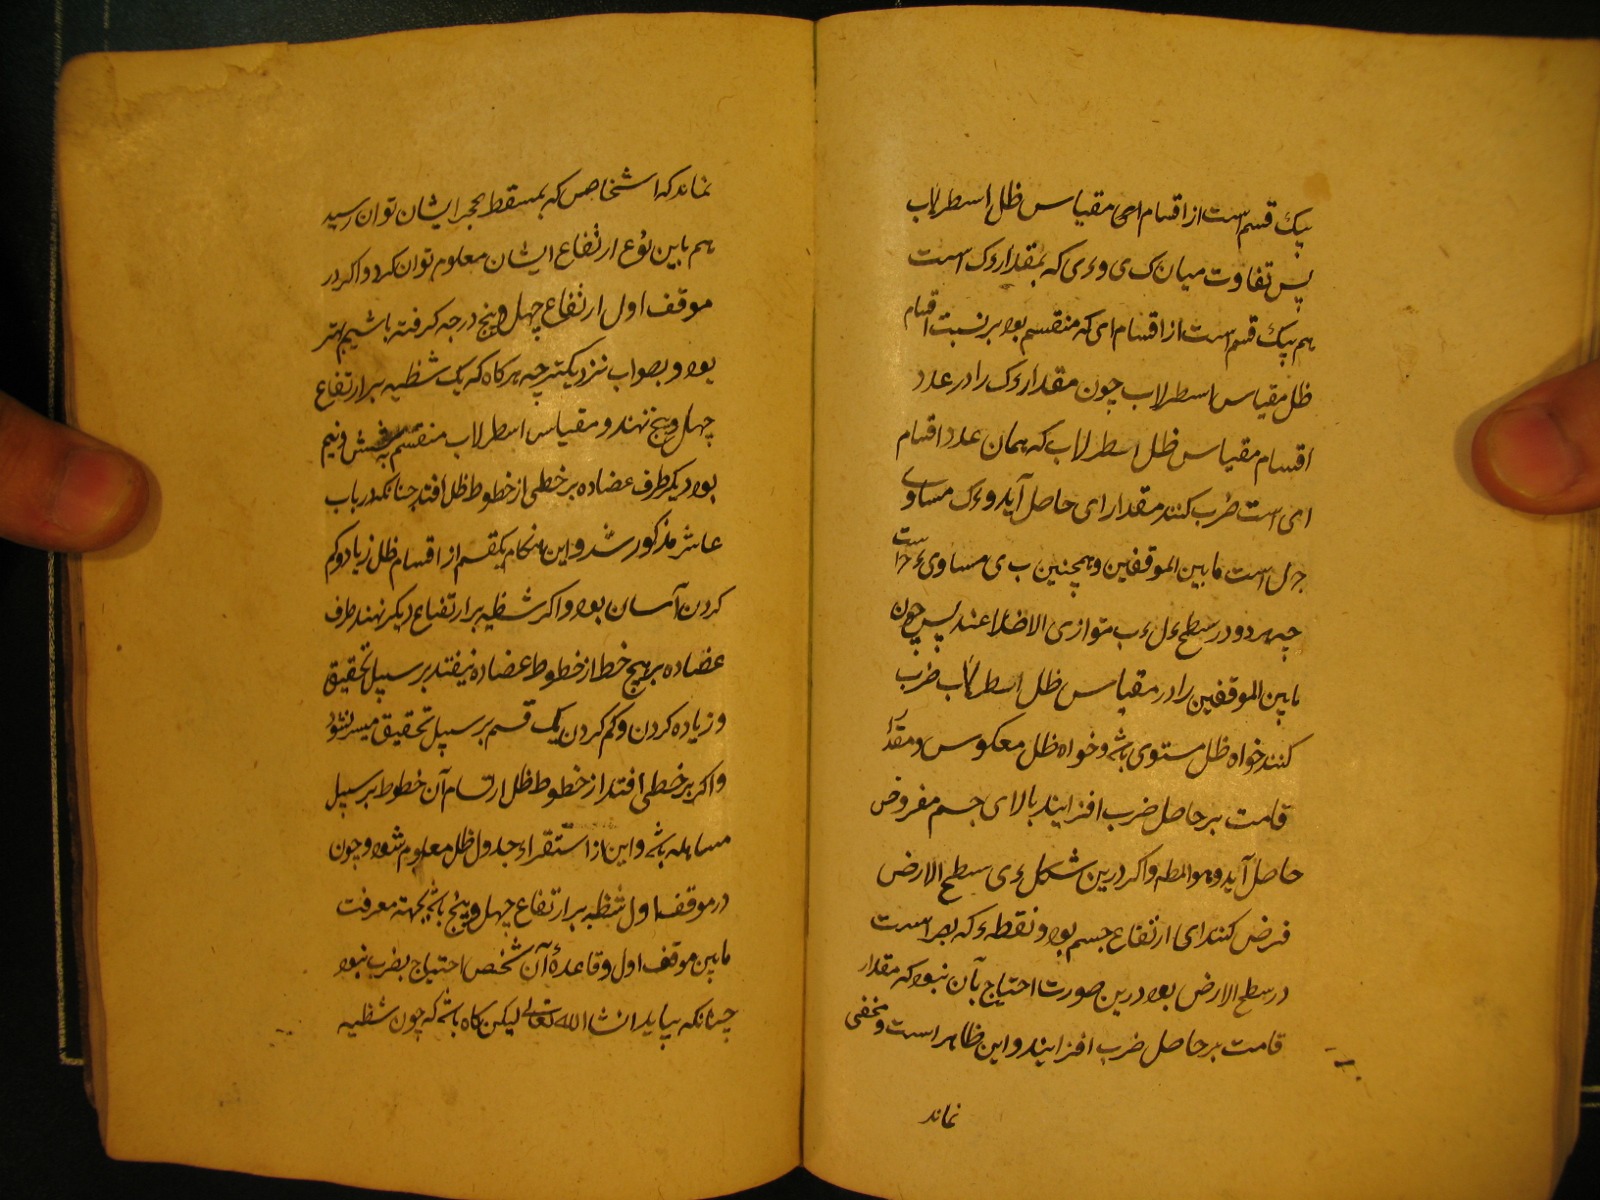 بیک قسم است از اقسام امی مقیاس ظل اسطرلاب
پس تفاوت میان ک ی و ء ی که بمقدار ء ک است
هم بیک قسم است از اقسام امی که منقسم بود بر نسبت اقسام
ظل مقیاس اسطرلاب چون مقدار ء ک را در عدد
اقسام مقیاس ظل اسطرلاب که همان عدد اقسام
امی است ضرب کنند مقدار ای حاصل آید و ء ک مساوی
ج ل است مابین الموقفین و همچنین ب ی مساوی ء ح است
چه هر دو در سطح ء ل ء ب متوازی الاضلاعند پس چون
مابین الموقفین را در مقیاس ظل اسطرلاب ضرب
کنند خواه ظل مستوی باشد و خواه ظل معکوس و مقدار
قامت بر حاصل ضرب افزایند بالای جسم مفروض
حاصل آید و هو المط و اکر درین شکل ء ی سطح الارض
فرض کنند ای ارتفاع جسم بود و نقطه ء که بصر است
در سطح الارض بود درین صورت احتیاج بآن نبود که مقدار
قامت بر حاصل ضرب افزایند و این ظاهر است و مخفی
نماند
نماند که اشخاص که بمسقط حجر ایشان توان رسید
هم باین نوع ارتفاع ایشان معلوم توان کرد و اکر در
موقف اول ارتفاع چهل و پنج درجه کرفته باشیم بهتر
بود و بصواب نزدیکتر چه هر کاه که یک شظیه بر ارتفاع
چهل و پنج نهند و مقیاس اسطرلاب منقسم به شش و نیم
بود دیکر طرف عضاده بر خطی از خطوط ظل افتد چنانکه در باب
عاشر مذکور شد و این هنکام یکقسم از اقسام ظل زیاد و کم
کردن آسان بود و اکر شظیه بر ارتفاع دیکر نهند طرف
عضاده بر هیج خط از خطوط عضاده نیفتد بر سبیل تحقیق
و زیاده کردن و کم کردن یک قسم بر سبیل تحقیق میسر نشود
و اکر بر خطی افتد از خطوط ظل ارتسام آن خطوط بر سبیل
مساهله باشد و این از استقراء جدول ظل معلوم شود و چون
در موقف اول شظیه بر ارتفاع چهل و پنج باشد بجهة معرفت
مابین موقف اول و قاعدۀ آن شخص احتیاج بضرب نبود
چنانکه بیاید انشا الله تعالی لیکن کاه باشد که چون شظیه